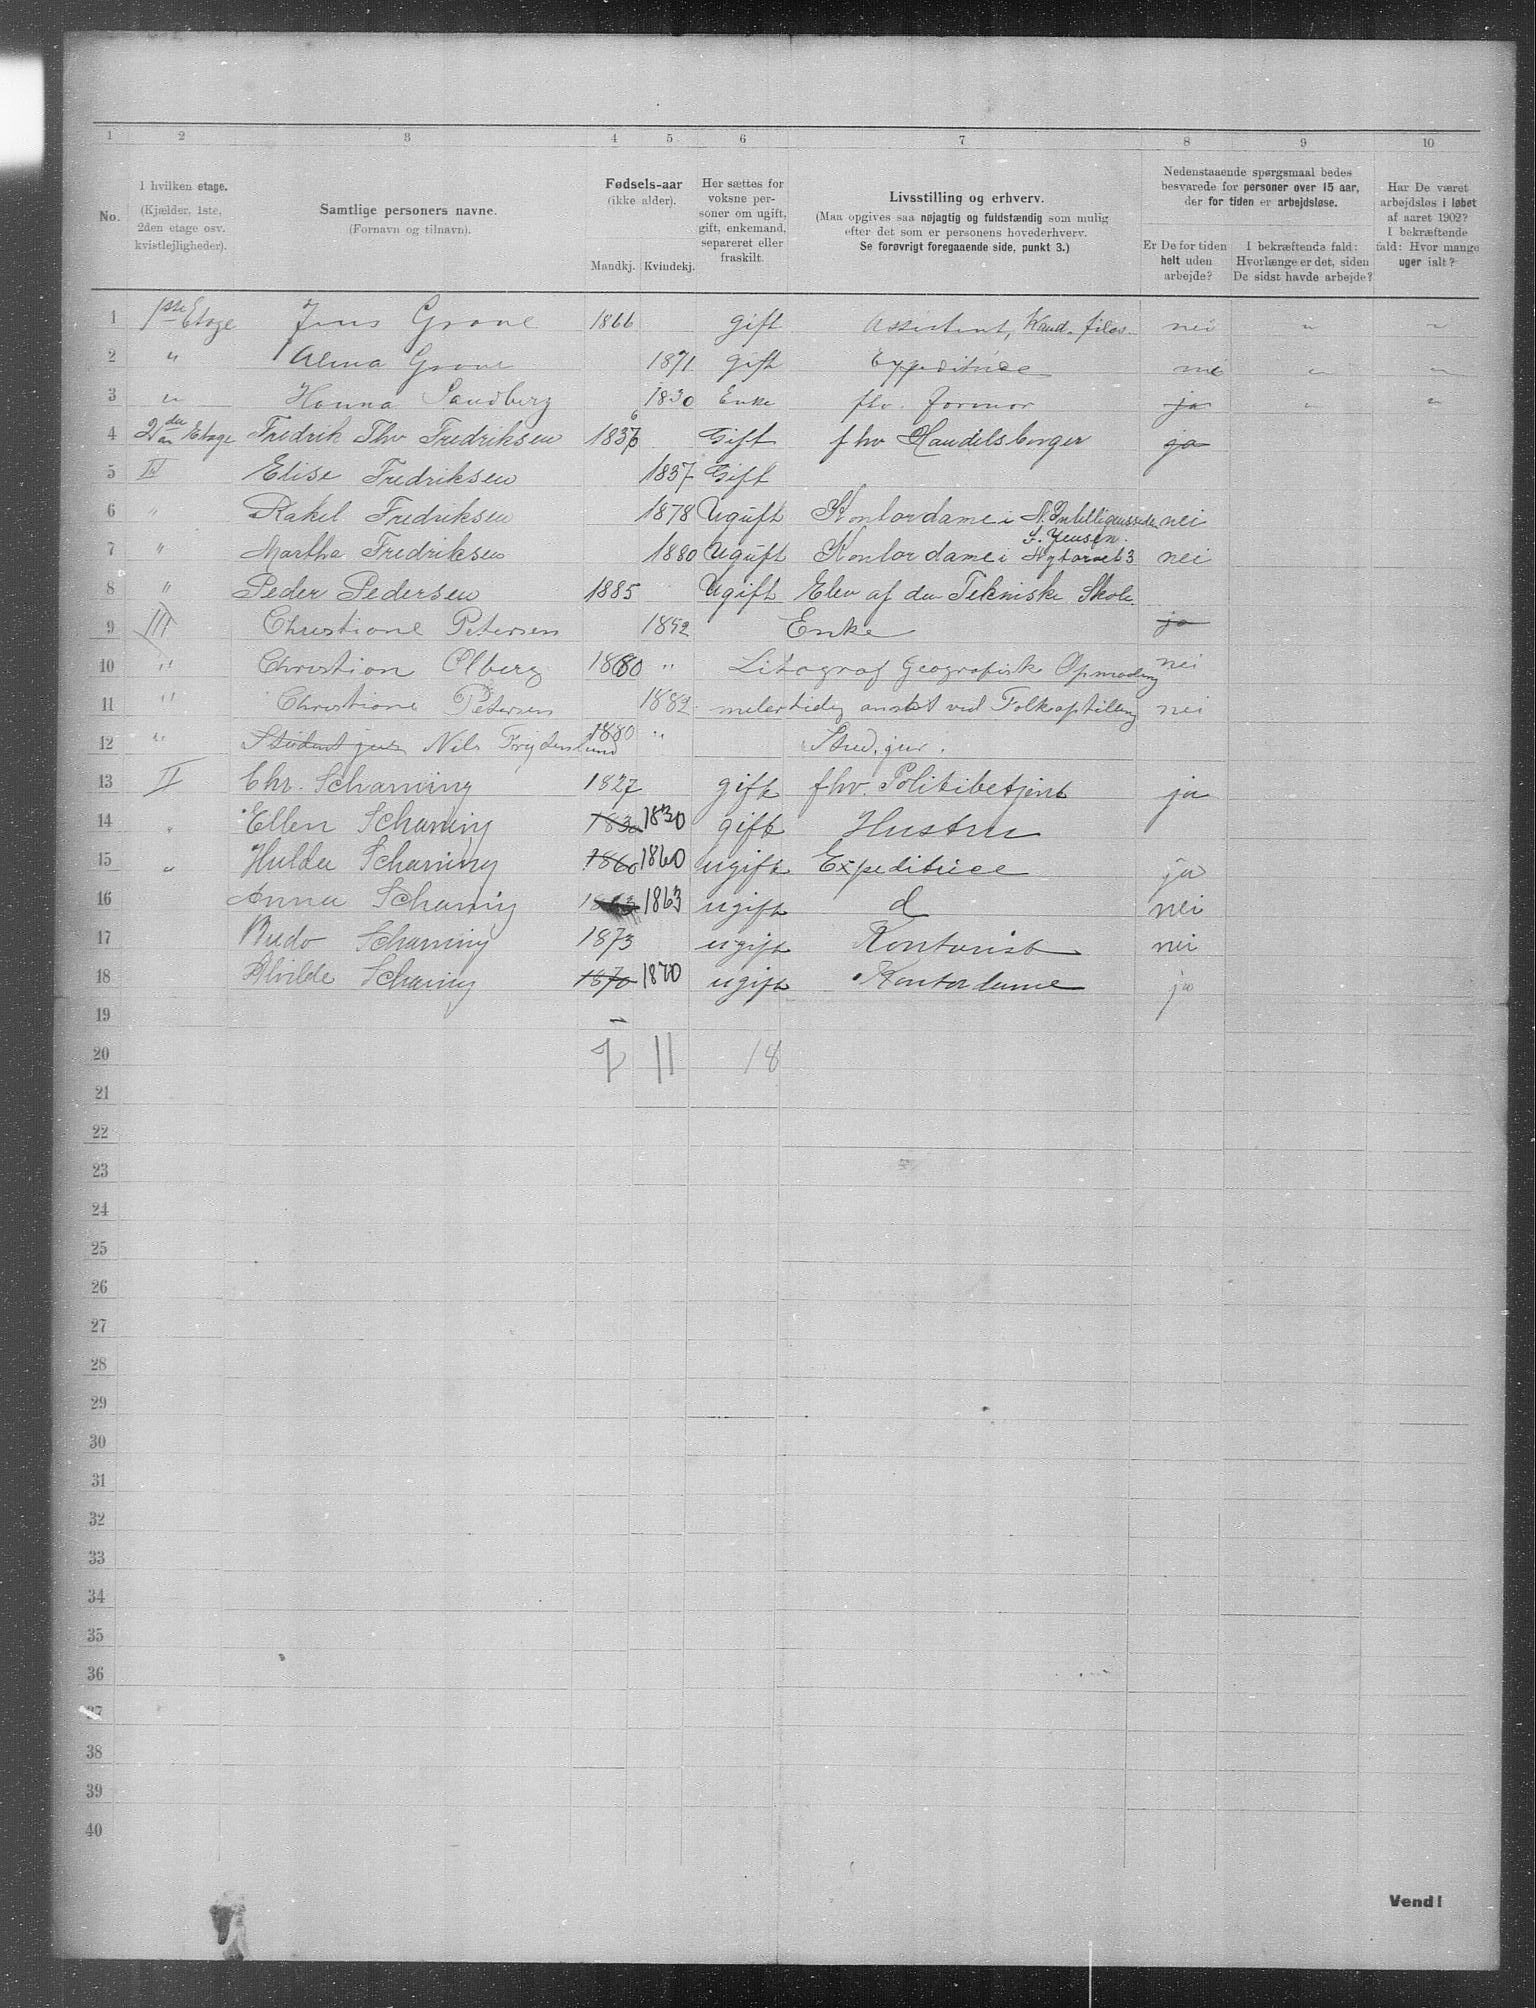 1 2 3 4 5 6 7 8 9 10
No. I hvilken etage. (Kjælder, 1ste, 2den etage osv. kvistlejligheder). Samtlige personers navne. (Fornavn og tilnavn). Fødsels-aar (ikke alder). Mandkj. Kvindekj. Her sættes for voksne personer om ugift, gift, enkemand, separeret eller fraskilt. Livsstilling og erhverv. (Maa opgives saa nøjagtig og fuldstændig som mulig efter det som er personens hovederhverv. Se forøvrigt foregaaende side, punkt 3.) Nedenstaaende spørgsmaal bedes besvarede for personer over 15 aar, der for tiden er arbejdsløse. Er De for tiden helt uden arbejde? I bekræftende fald: Hvorlænge er det, siden De sidst havde arbejde? Har De været arbejdsløs i løbet af aaret 1902? I bekræftende fald: Hvor mange uger ialt?
1 1ste Etage Jens Grove 1866 gift Assistent, Kand. filos. nei " "
2 " Alma Grove 1871 gift Expeditrice nei " "
3 " Hanna Sandberg 1830 Enke fhv. Jormor ja " "
4 2den Etage Fredrik Thv Fredriksen 1836 Gift fhv Handelsborger ja
5 II Elise Fredriksen 1837 Gift
6 " Rakel Fredriksen 1878 Ugift Kontordame i N. Intelligenssede nei
7 " Martha Fredriksen 1880 Ugift Kontordame i S. Jensen. Nytorvet 3 nei
8 " Peder Pedersen 1885 Ugift Elev af den Tekniske Skole
9 III Christiane Petersen 1852 Enke ja
10 " Christian Olberg 1880 " Litograf Geografisk Opmaaling nei
11 " Christiane Petersen 1882 melertidig ansat ved Folketælling nei
12 " Student jur Nils 1880 " Stud. jur.
13 II Chr. Scharning 1827 gift fhv. Politibetjent ja
14 " Ellen Scharning 1830 1830 gift Hustru
15 " Hulda Scharning 1860 1860 ugift Expeditrice ja
16 Anna Scharning 1863 1863 ugift d nei
17 Budo Scharning 1873 ugift Kontorist nei
18 Alvilde Scharning 1870 1870 ugift Kontordame ja
19
20 7 11 18
21
22
23
24
25
26
27
28
29
30
31
32
33
34
35
36
37
38
39
40
Vend!